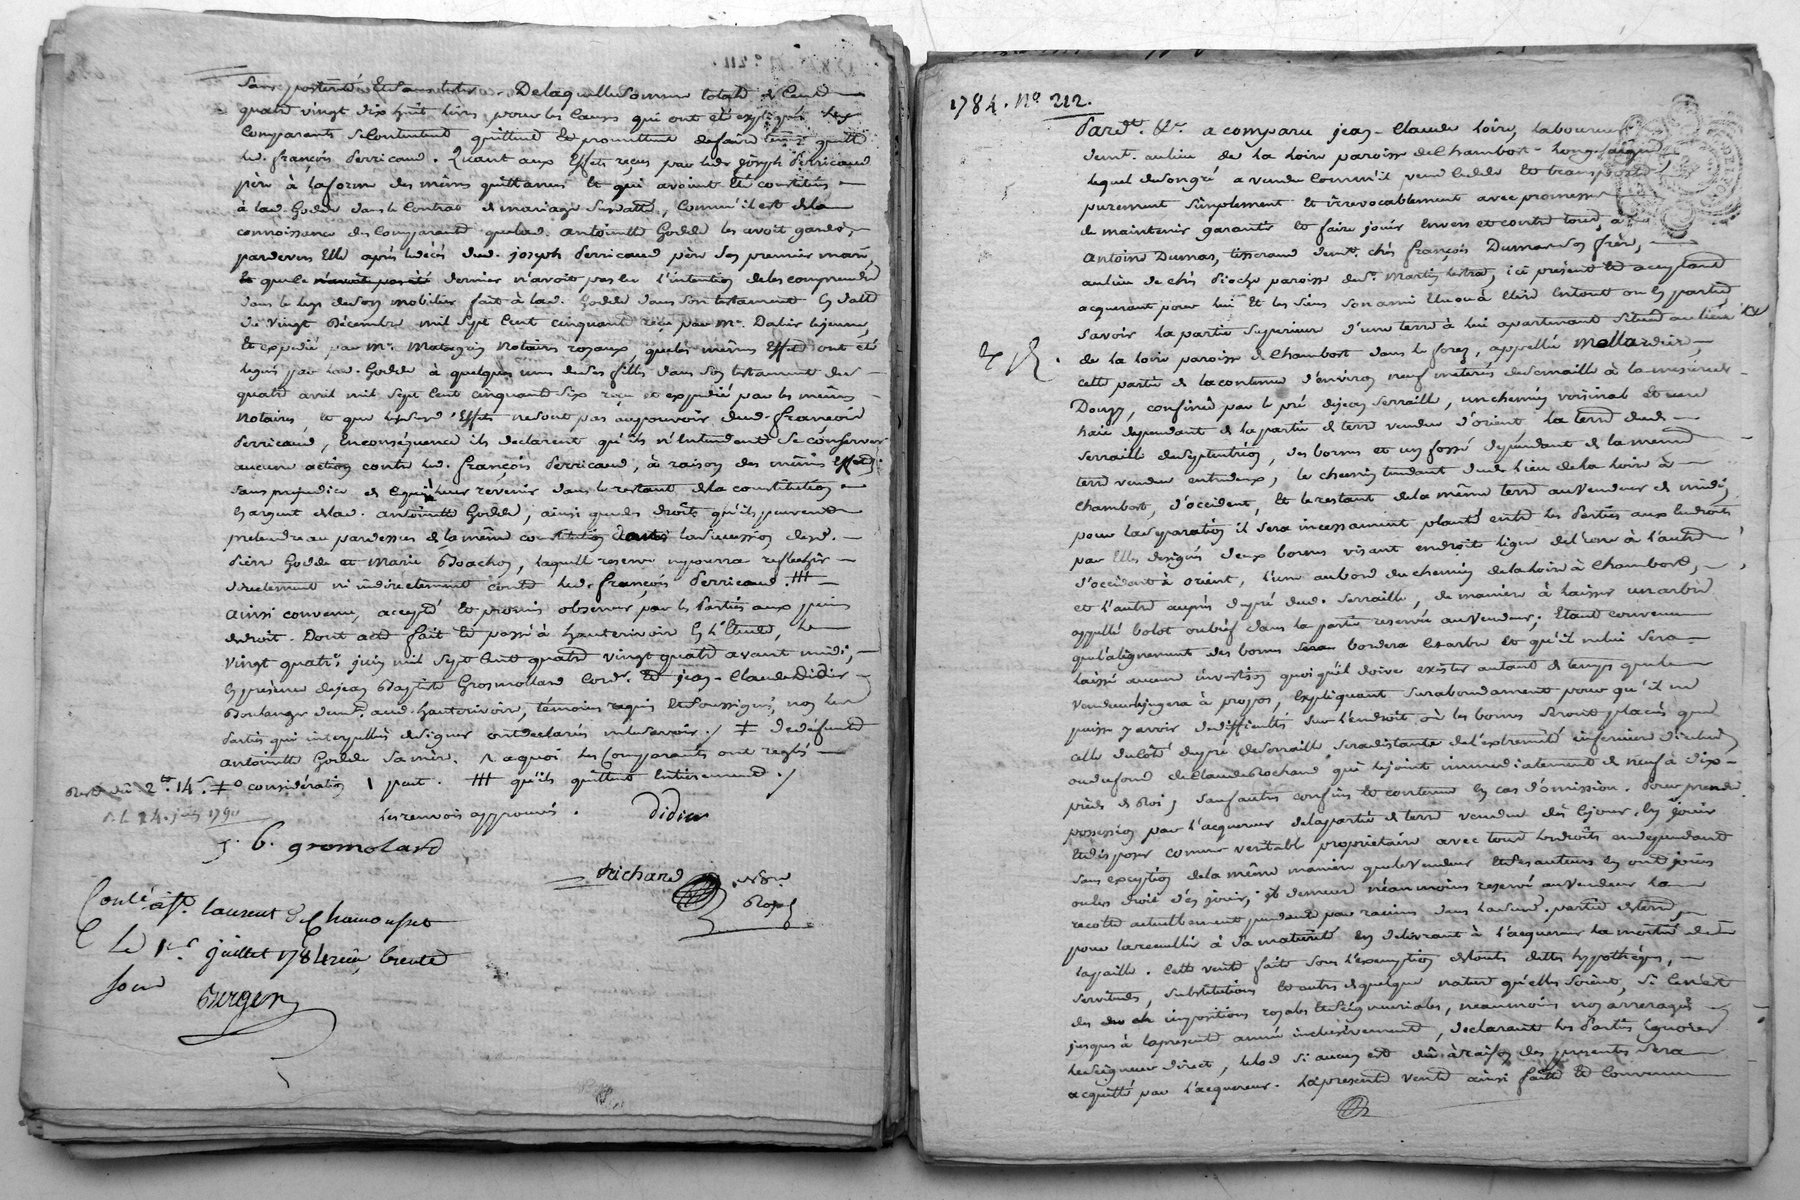 De laquelle somme totale de Cent
quatre vingt dix huit livres, pour les Causes qui ont été expliqués les
Comparants se Contentent quittent et promettent de faire tenir quitte
led. françois Perricaud. Quant aux Effets reçus par led. Joseph Perricaud
père à la forme des mêmes quittances et qui avoient été constitués
à lad. Godde dans le Contrat de mariage susdatté, Comm'il est de la
connoissance des Comparants que lad. antoinette Godde les avoit gardés
pardevers Elle après le décès dud. joseph Perricaud père son premier mari,
et que le dernier n'avoit pas eu l'intention de les comprendre
dans le legs de son mobilier fait à lad. Godde dans son testament en datte
du vingt Décembre mil sept Cent cinquante reçu par Me. Dalier lejeune,
et expédié par Me. Notaires royaux, que les mêmes Effets ont été
legués par lad. Godde à quelques unes de ses filles dans son testament du
quatre avril mil sept Cent cinquante six reçu et expédié par les mêmes
Notaires, et que lesdits Effets ne sont pas au pouvoir dud. françois
Perricaud, En conséquence ils declarent qu'ils n'Entendent se conserver
aucune action contre led. françois Perricaud, à raison des mêmes Effets
sans prejudice de ce qui leur revenir dans le restant de la constitution
En argent de lad. antoinette Godde, ainsi que des droits qu'ils peuvent
pretendre au pardessus de la même constitution la succession desd.
Pierre Godde et Marie Boachon, laquelle reserve ne pourra reflechir
directement ni indirectement contre led. françois Perricaud.
ainsi convenu, accepté et promis observer par les Parties aux peines
de droit. Dont acte fait et passé à hauterivoire En l'Etude, le
vingt quatre juin mil sept Cent quatre vingt quatre avant midi,
En présence de jean Baptiste Grosmollard Cordr. Et jean-Claude Didier
Boulanger demt. aud. hauterivoire, témoins requis Et soussignés, non les
Parties qui interpellées de signer ont declarés ne le savoir ./. ǂ de defunte
antoinette Godde sa mère. a quoi les Comparants ont reglés
ǂ considération 1 peut. ǂǂǂ qu'ils quittent Entierement ./
les renvois approuvés. Didier
j. b. gromolard
Richard
Conté. à St. laurent de Chamousset
Le 1er. juillet 1784 reçu trente
sous
Berger
1784. No. 212.
Pardt. &c. a comparu jean-Claude loire, laboureur
demt. au lieu de la loire paroisse de Chambost-Longessaigne
lequel de son gré a vendu Comm'il vend cedde et transporte
purement simplement et irrevocablement avec promesse
de maintenir garantir et faire jouir Envers et contre tous, à
Antoine Dumas, tisserand demt. chés françois Dumas son frère,
au lieu de chés Pioche paroisse de St. Martin lestra, ici présent et acceptant
acquerant pour lui Et les siens son ami Elu ou à Elire En tout ou En partie
savoir la partie superieure d'une terre à lui apartenant située au lieu
de la loire paroisse de Chambost dans le forez, appellée Mollardier,
cette partie de la contenue d'environ neuf meterés de semaille à la mesure de
Donzy, confinée par le pré de jean Serraille, un chemin voisinal et une
haie dependant de la partie de terre vendue d'orient la terre dud.
Serraille de septentrion, des bornes et un fossé dependant de la même
terre vendue entredeux, le chemin tendant dud. lieu de la loire à
Chambost, d'occident, Et le restant de la même terre au Vendeur de midi,
pour la separation il sera incessament planté entre les Parties aux Endroits
par Elles designés deux bornes visant en droite ligne de l'une à l'autre
d'occident à orient, l'une au bord du chemin de la loire à Chambost,
et l'autre auprès du pré dud. Serraille, de manière à laisser un arbre
appellé bolot dans la partie reservée au Vendeur; Etant convenu
que l'alignement des bornes bordera led. arbre et qu'il ne lui sera
laissé aucune invertison quoi qu'il doive exister autant de temps que le
vendeur jugera à propos, Expliquant surabondament pour qu'il ne
puisse y avoir de difficulté sur l'endroit où les bornes seront placés que
celle du côté du pré de Serraille sera distante de l'extremité inferieure d'icelui
ou du fond de Claude Rochard qui le joint immediatement de neuf à dix
pieds de Roi, sauf autres confins et contenue En cas d'omission. Pour prendre
possession par l'acquereur de la partie de terre vendue dès ce jour, en jouir
Et disposer comme veritable proprietaire avec tous les droits en dependant
sans exception de la même manière que le Vendeur Et ses auteurs En ont jouis
ou dus droit d'en jouir; il demeure néanmoins reservé au Vendeur la
recolte actuellement pendante par racines dans lad. partie de terre,
pour la recueillir à sa maturité En delivrant à l'acquereur la moitié de
la paille. Cette vente faite sous l'exemption de toutes dettes hypothéques,
servitudes, substitutions et autres de quelque nature qu'elles soient, si Ce n'est
des impositions royales Et seigneuriales, néanmoins non arreragés
jusques à la presente année inclusivement, declarant les Parties ignorer
le Seigneur direct, le lod si aucun est dû à raison des presentes sera
acquitté par l'acquereur. La presente vente ainsi faitte Et Convenue